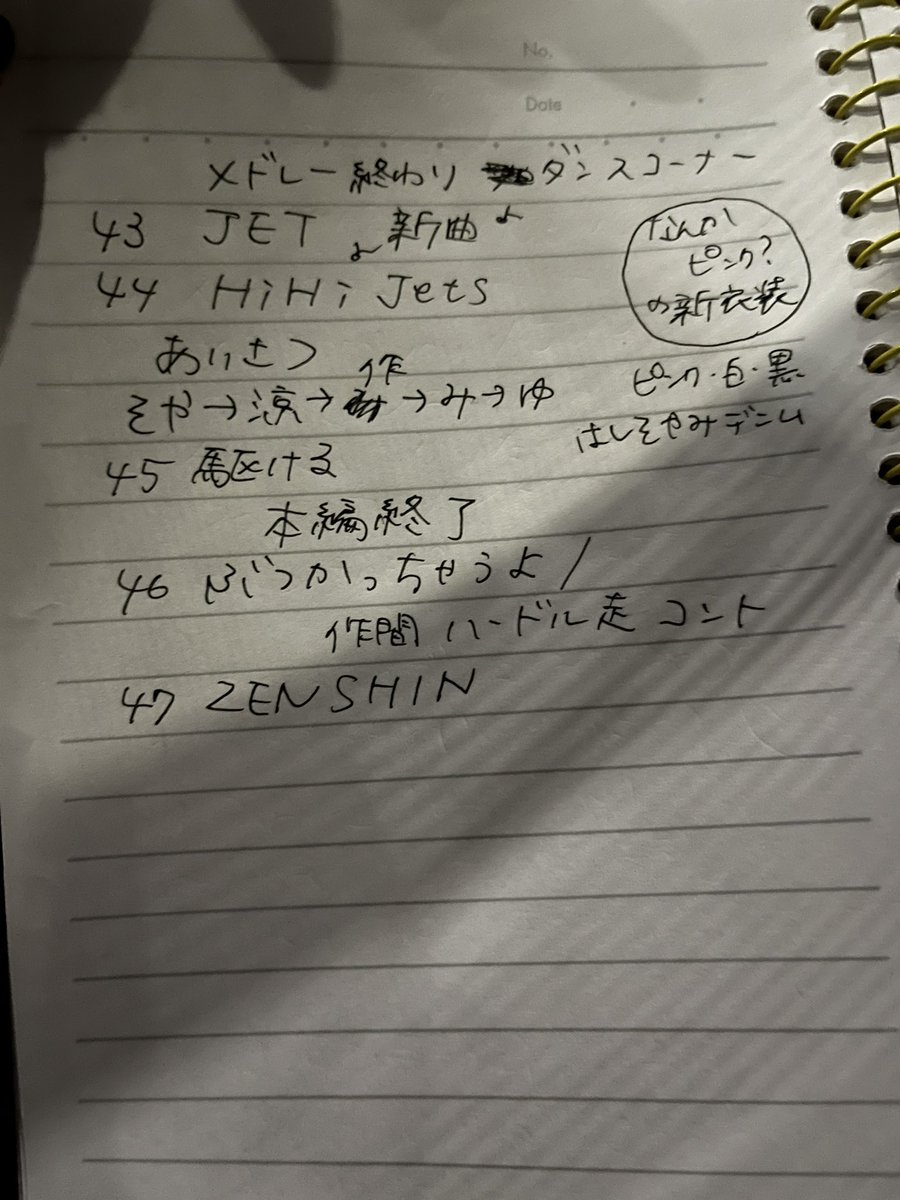 No.
Date
メドレー終わり ダンスコーナー
43 JET ♪新曲♪
44 HiHi Jets
なんか
ピンク?
の新衣装
あいさつ
作
そや→涼→ →み→ゆ
ピンク・白・黒
はしそやみデニム
45 駆ける
本編終了
46 ぶつかっちゃうよ/
作間 ハードル走 コント
47 ZENSHIN